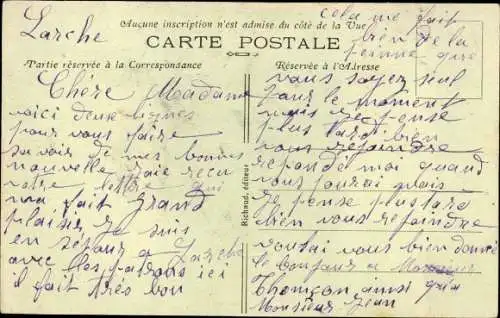 Aucune inscription n'est admise du côté de la Vue
CARTE POSTALE
Partie réservée à la Correspondance
Réservée à l'Adresse
Richaud, éditeur
Larche
Chère Madame
voici deux lignes
pour vous faire
savoir de mes bonnes
nouvelle j'aie recu
votre lettre qui
ma fait grand
plaisir je suis
en séjour a Larche
avec lles patrons ici
il fait très bon
cela me fait
bien de la
peinne que
vous soyez seul
pour le moment
mais je pense
plus tard bien
vous rejoindre
reponde moi quand
vous pourai mais
je pense plus tard
bien vous rejoindre
voulai vous bien donné
le bonjour a Monsieur
ainsi qua
Monsieur Jean